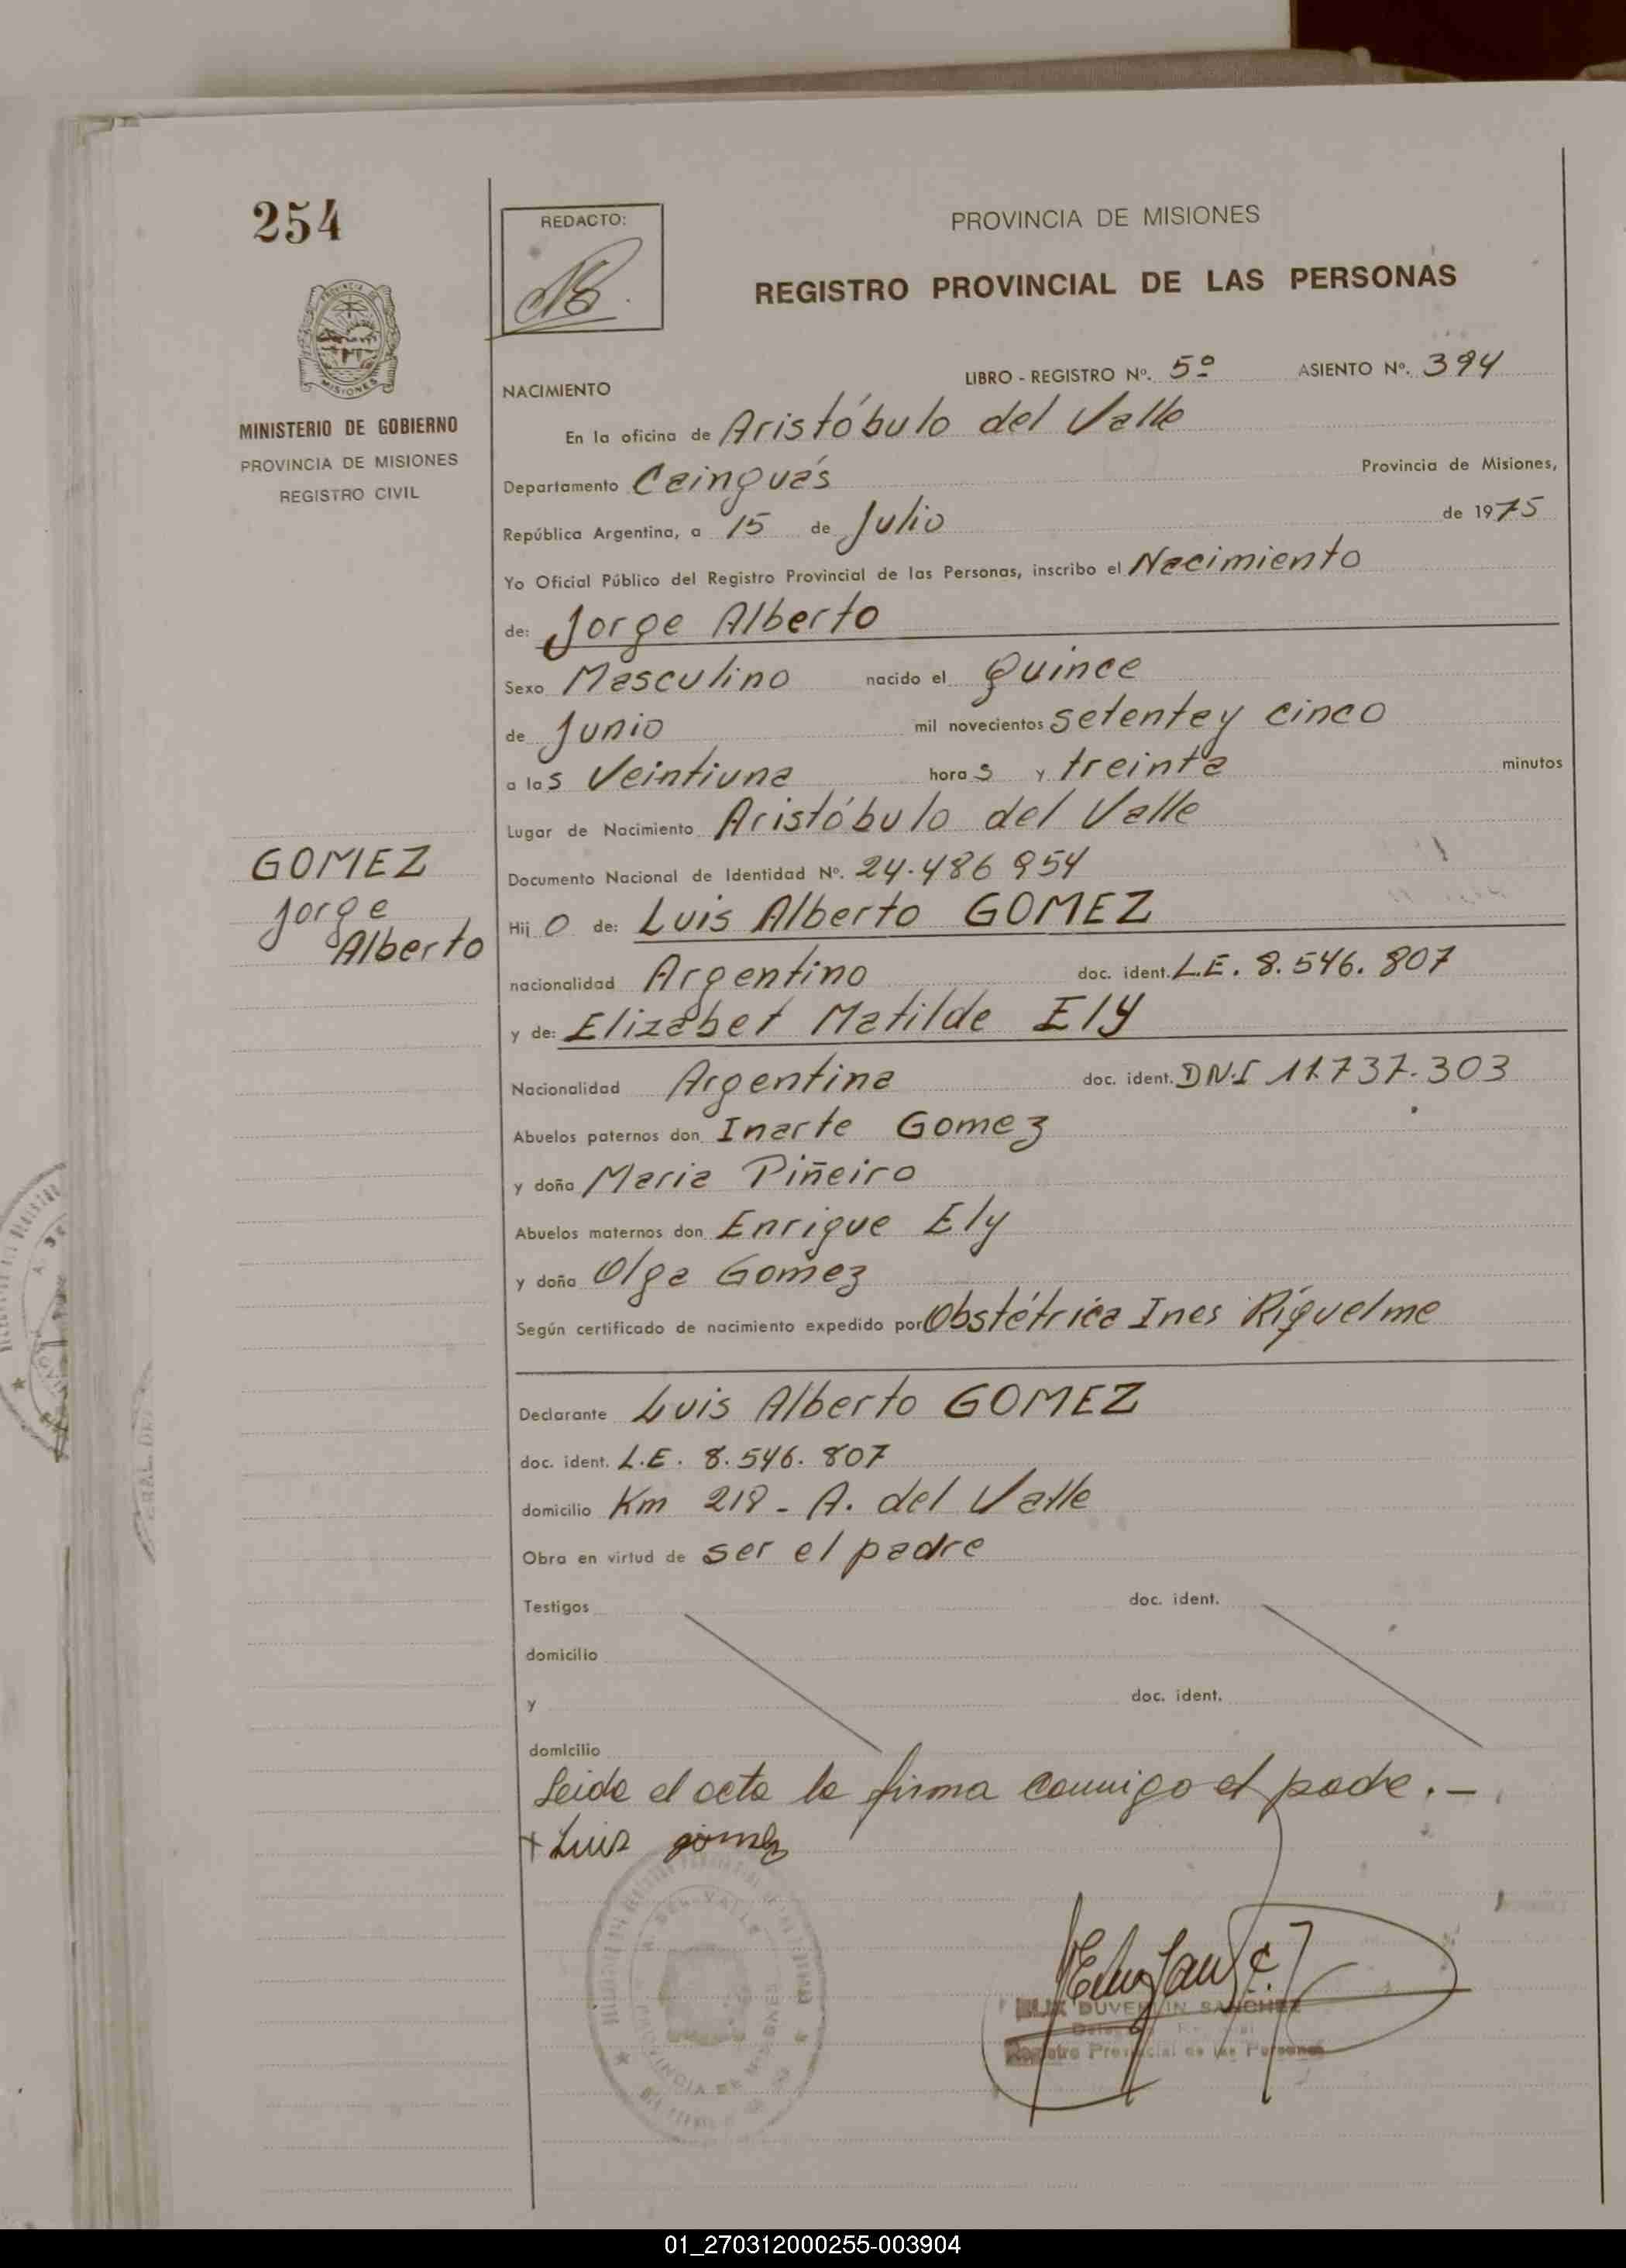 254
REDACTO:
PROVINCIA DE MISIONES
REGISTRO PROVINCIAL DE LAS PERSONAS
MISIONES
MINISTERIO DE GOBIERNO
PROVINCIA DE MISIONES
REGISTRO CIVIL
NACIMIENTO
LIBRO - REGISTRO Nº. 5º ASIENTO Nº. 394
En la oficina de Aristóbulo del Valle
Departamento Cainguás Provincia de Misiones,
República Argentina, a 15 de Julio de 1975
Yo Oficial Público del Registro Provincial de las Personas, inscribo el Nacimiento
de: Jorge Alberto
Sexo Masculino nacido el Quince
de Junio mil novecientos setentay cinco
a las Veintiuna horas y treinta minutos
Lugar de Nacimiento Aristóbulo del Valle
GOMEZ
Jorge
Alberto
Documento Nacional de Identidad Nº. 24.486 954
Hijo de: Luis Alberto GOMEZ
nacionalidad Argentino doc. ident. L.E. 8.546.807
y de: Elizabet Matilde Ely
Nacionalidad Argentina doc. ident. DN.I 11.737.303
Abuelos paternos don Inarte Gomez
y doña Maria Piñeiro
Abuelos maternos don Enrique Ely
y doña Olga Gomez
Según certificado de nacimiento expedido por Obstétrica Ines Riquelme
Declarante Luis Alberto GOMEZ
doc. ident. L.E. 8.546.807
domicilio Km 218 - A. del Valle
Obra en virtud de ser el padre
Testigos doc. ident.
domicilio
y doc. ident.
domicilio
Leida el acta la firma conmigo el padre.-
+ Luis gomez
DUVERLIN SANCHEZ
Registro Provincial de las Personas
A. DEL VALLE
PROVINCIA DE MISIONES
01_270312000255-003904